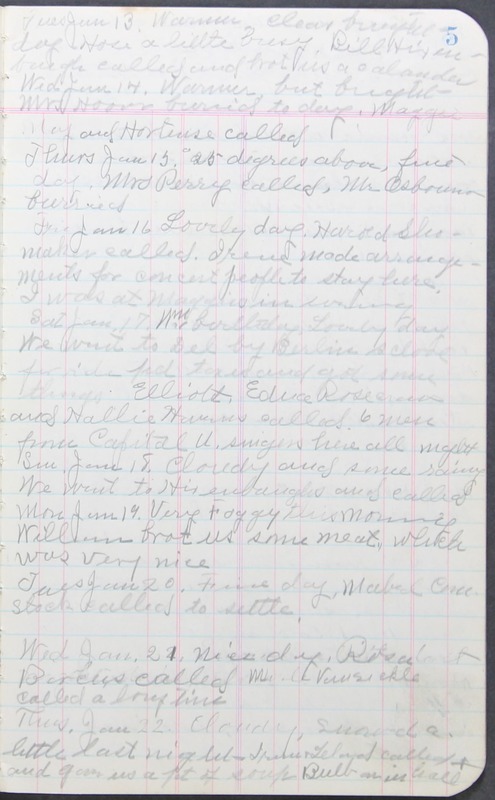 5
Tues Jan 13. Warmer, clear bright
day. Hose a little busy. Bill Hisen-
baugh called and brot us a calander
Wed Jan 14. Warmer, but bright
Mrs Hoover burried to day. Maggie
May and Hortense called
Thurs Jan 15. 25 degrees above, fine
day. Mrs Perry called, Mr Osbourn
burried
Fri Jan 16 Lovely day. Harold Sho-
maker called. Irene made arrange-
ments for concert people to stay here.
I was at Maggies in evening
Sat Jan. 17. Wms birthday. Lovely day
We went to Del by Berlin &
and got some
things. Elliott, Edna Roseanna
and Hallie Havens called. 6 men
from Capital U. singers here all night
Sun. Jan 18. Cloudy and some rainy
We went to Hisenbaughs and called
Mon Jan 19. Very Foggy this morning
William brot us some meat, which
was very nice
Tues Jan 20. Fine day, Mabel Com-
stock called to settle.
Wed Jan. 21, nice day.
called Mr. Vansickle
called a long time
Thus. Jan 22. Cloudy, snowed a
little last night. called &
and gave us a pt of soup